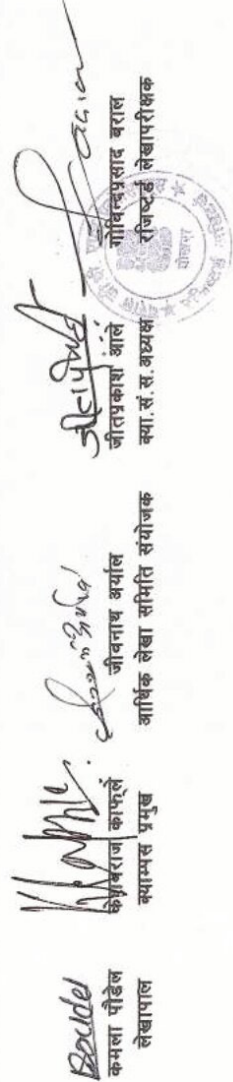 कमला पौडेल
लेखापाल
केशवराज काफ्ले
क्याम्पस प्रमुख
जीवनाथ अर्याल
आर्थिक लेखा समिति संयोजक
जीतप्रकाश आले
क्या.सं.स.अध्यक्ष
गोविन्दप्रसाद बराल
रजिष्टर्ड लेखापरीक्षक